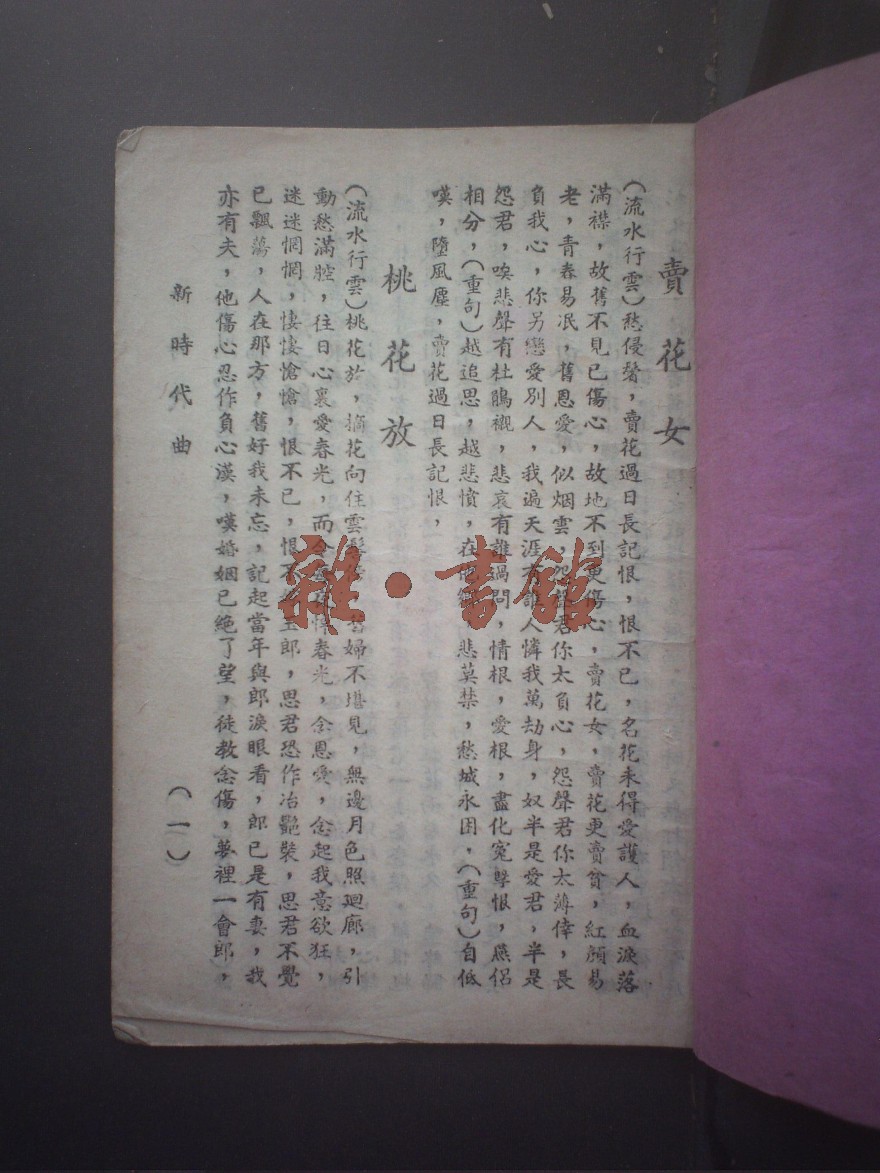 賣花女
(流水行雲)愁侵鬢，賣花過日長記恨，恨不已，名花未得愛護人，血淚落
滿襟，故舊不見已傷心，故地不到更傷心，賣花女，賣花更賣貧，紅顏易
老，青春易泯，舊恩愛，似烟雲，怨聲君你太負心，怨聲君你太薄倖，長
負我心，你另戀愛別人，我遍天涯有誰人憐我萬劫身，奴半是愛君，半是
怨君，喚悲聲有杜鵑襯，悲哀有誰過問，情根，愛根，盡化冤孽恨，燕侶
相分，(重句)越追思，越悲憤，在悲莫禁，愁城永困，(重句)自低
嘆，墮風塵，賣花過日長記恨，
桃花放
(流水行雲)桃花放，摘花向住雲鬢婦不堪見，無邊月色照廻廊，引
動愁滿腔，往日心裏愛春光，而今春光，念恩愛，念起我意欲狂，
迷迷惘惘，悽悽愴愴，恨不已，恨不玉郎，思君恐作冶艷裝，思君不覺
已飄蕩，人在那方，舊好我未忘，記起當年與郎淚眼看，郎已是有妻，我
亦有夫，他傷心忍作負心漢，嘆婚姻已絕了望，徒教念傷，夢裡一會郎，
新時代曲
(一)
雜·書館